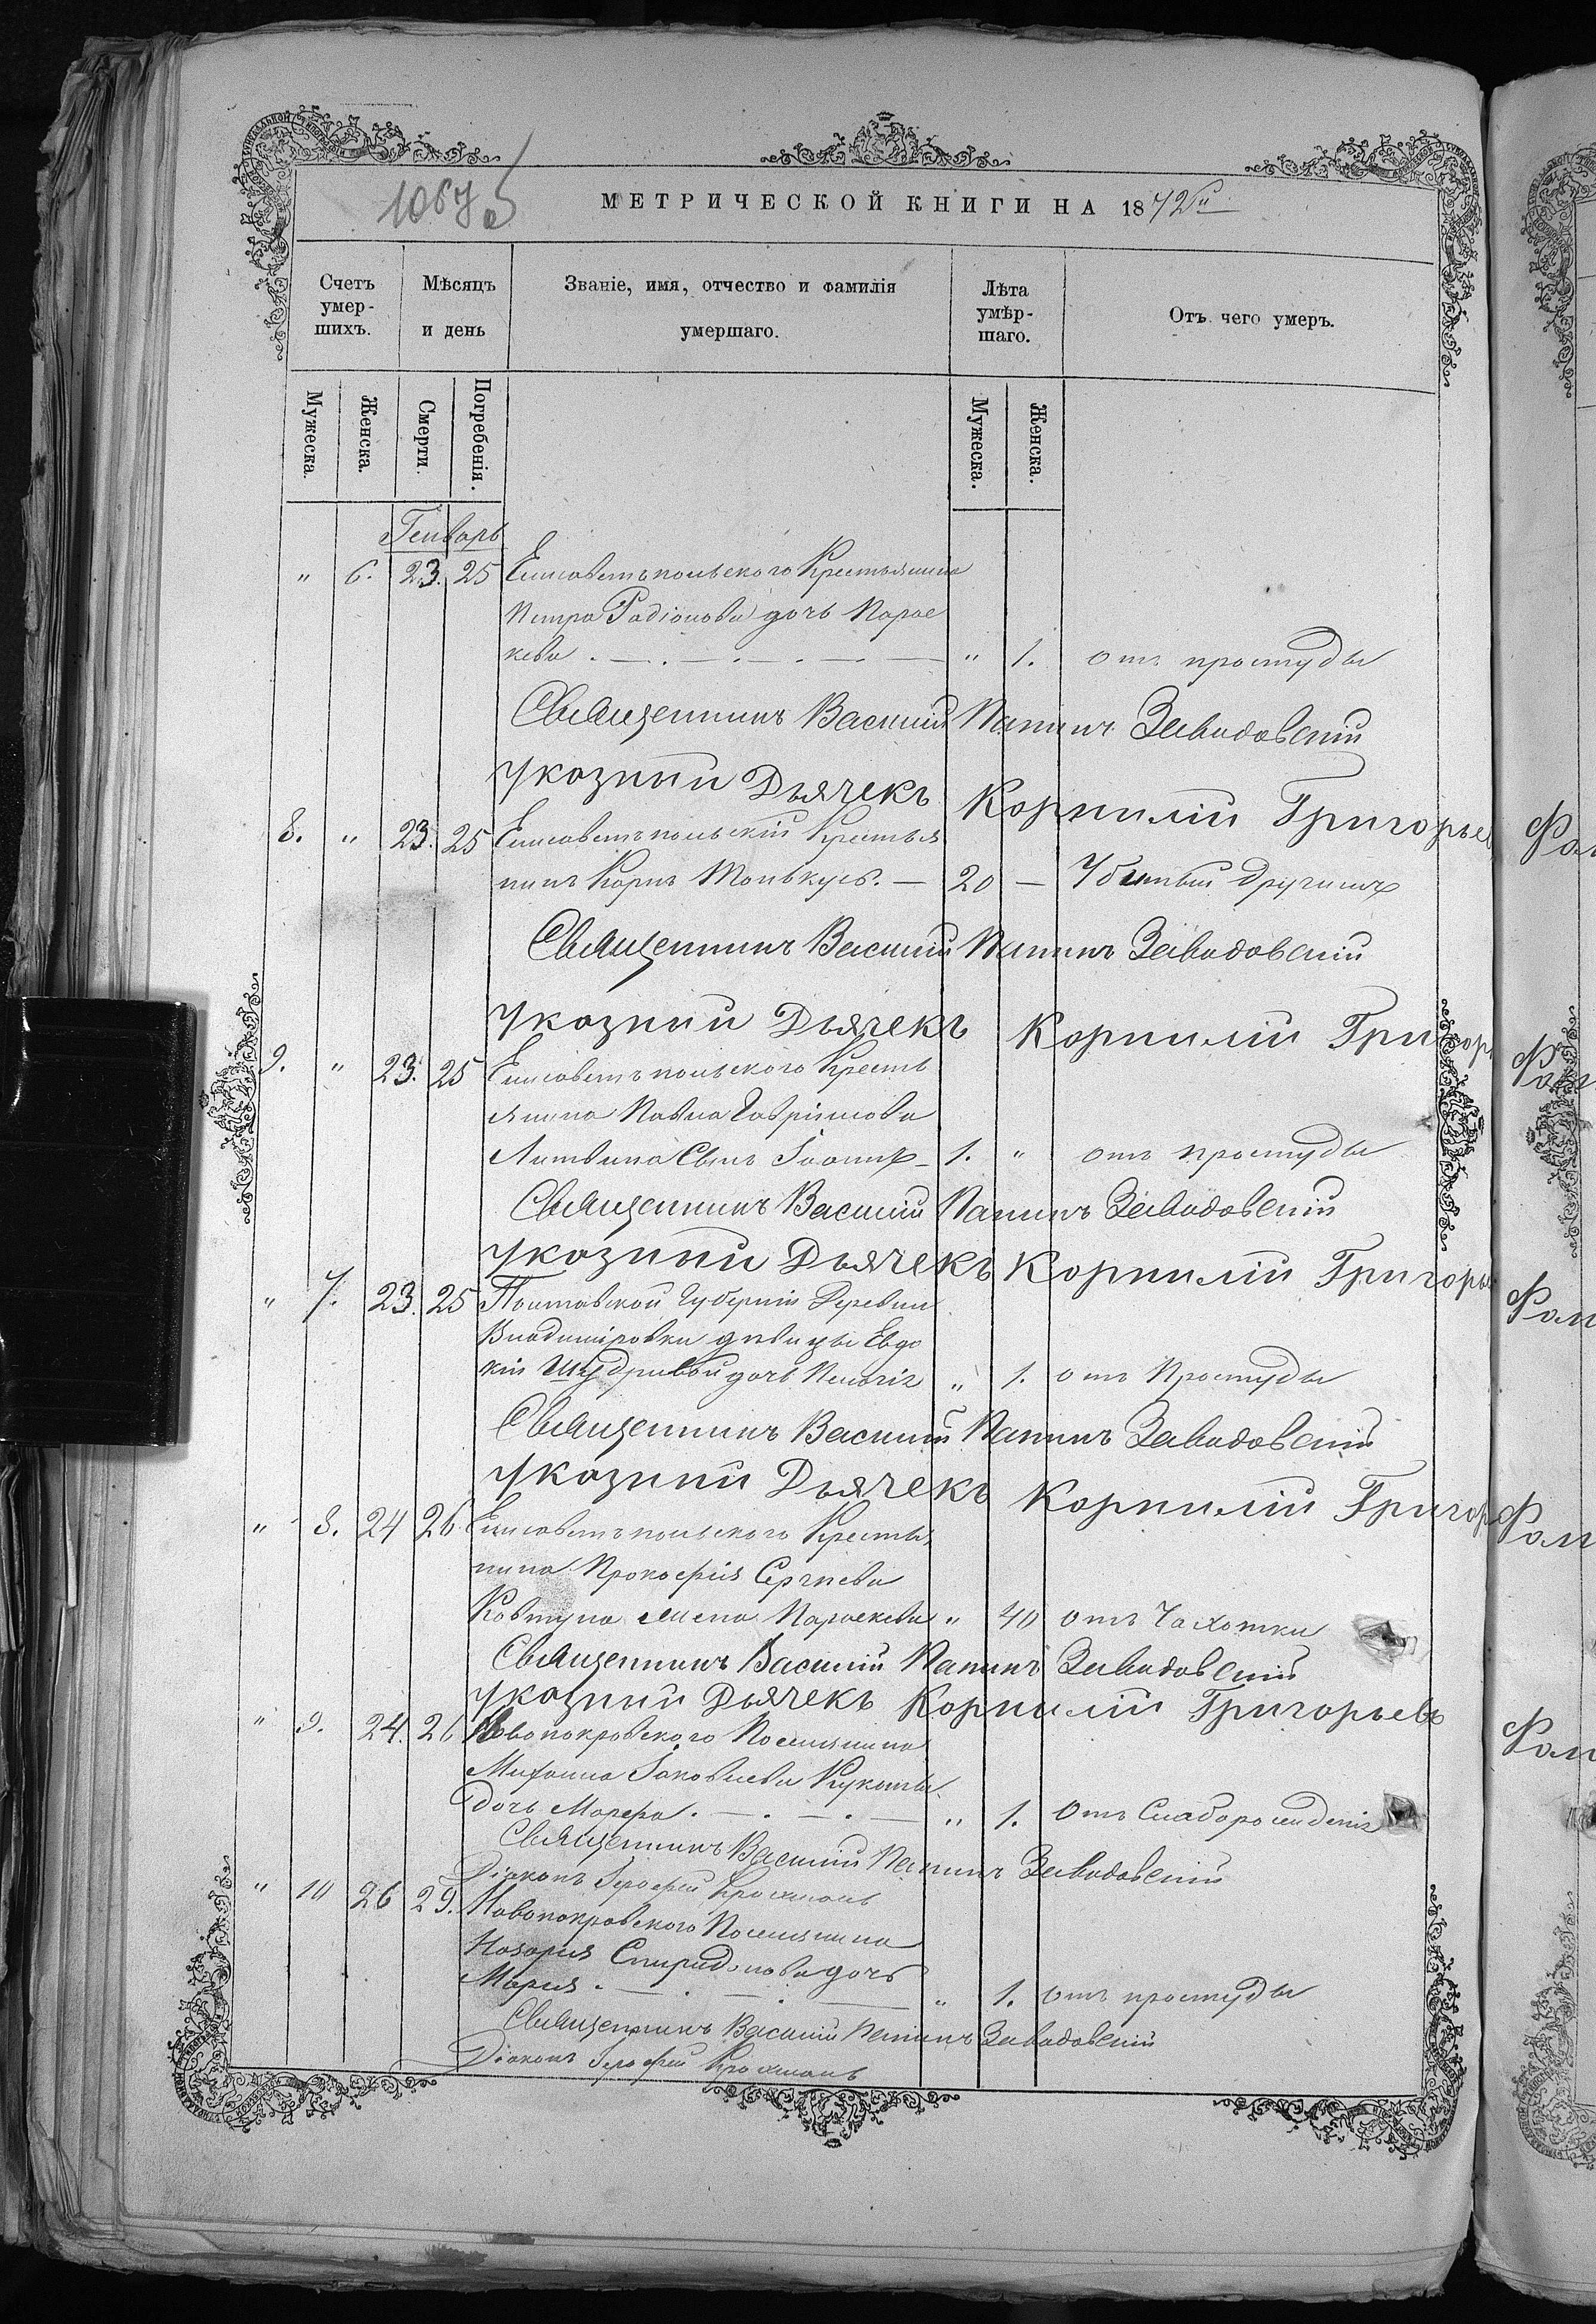 1067
МЕТРИЧЕСКОЙ КНИГИ НА 1872й
Счетъ умер- шихъ.
Мѣсяцъ и день
Званіе, имя, отчество и фамилія умершаго.
Лѣта умѣр- шаго.
Отъ чего умеръ.
Мужеска. Женска. Смерти. Погребенія. Мужеска. Женска.
Генварь
" 6. 23. 25 Елисаветъпольского Крестьянина
Петра Радіонова дочь Парас
кева . — . — . — . — " 1. отъ простуды
Священникъ Василій Завадовскій
указный Дьячекъ Корнилій Григорьев
8. " 23. 25 Елисаветъпольскій Крестья
нинъ Карпъ — 20 — Убитый другимъ
Священникъ Василій Завадовскій
указный Дьячекъ Корнилій Григор
9. " 23. 25 Елисаветъпольского Кресть
янина Павла Гаврілова
Литвина Сынъ — 1. " отъ простуды
Священникъ Василій Завадовскій
указный Дьячекъ Корнилій Григорь
" 7. 23. 25 Полтавской Губерніи Деревни
Владиміровки дѣвицы Евдо
кіи дочь Пелагія " 1. отъ Простуды
Священникъ Василій Завадовскій
указный Дьячекъ Корнилій Григор
" 8. 24 26 Елисаветъпольского Крестья
нина Прокофія Сергѣева
Ковтуна жена Параскева " 40 отъ Чахотки
Священникъ Василій Завадовскій
указный Дьячекъ Корнилій Григорьевъ
" 9. 24. 26 Новопокровского Поселянина
Михаила Іаковлева
дочь Марфа . — . — . — " 1. отъ Слаборожденія
Священникъ Василій Завадовскій
Діаконъ
" 10 26 29. Новопокровского Поселянина
Назарія Спиридонова дочь
Марія . — . — . — " 1. отъ простуды
Священникъ Василій Завадовскій
Діаконъ